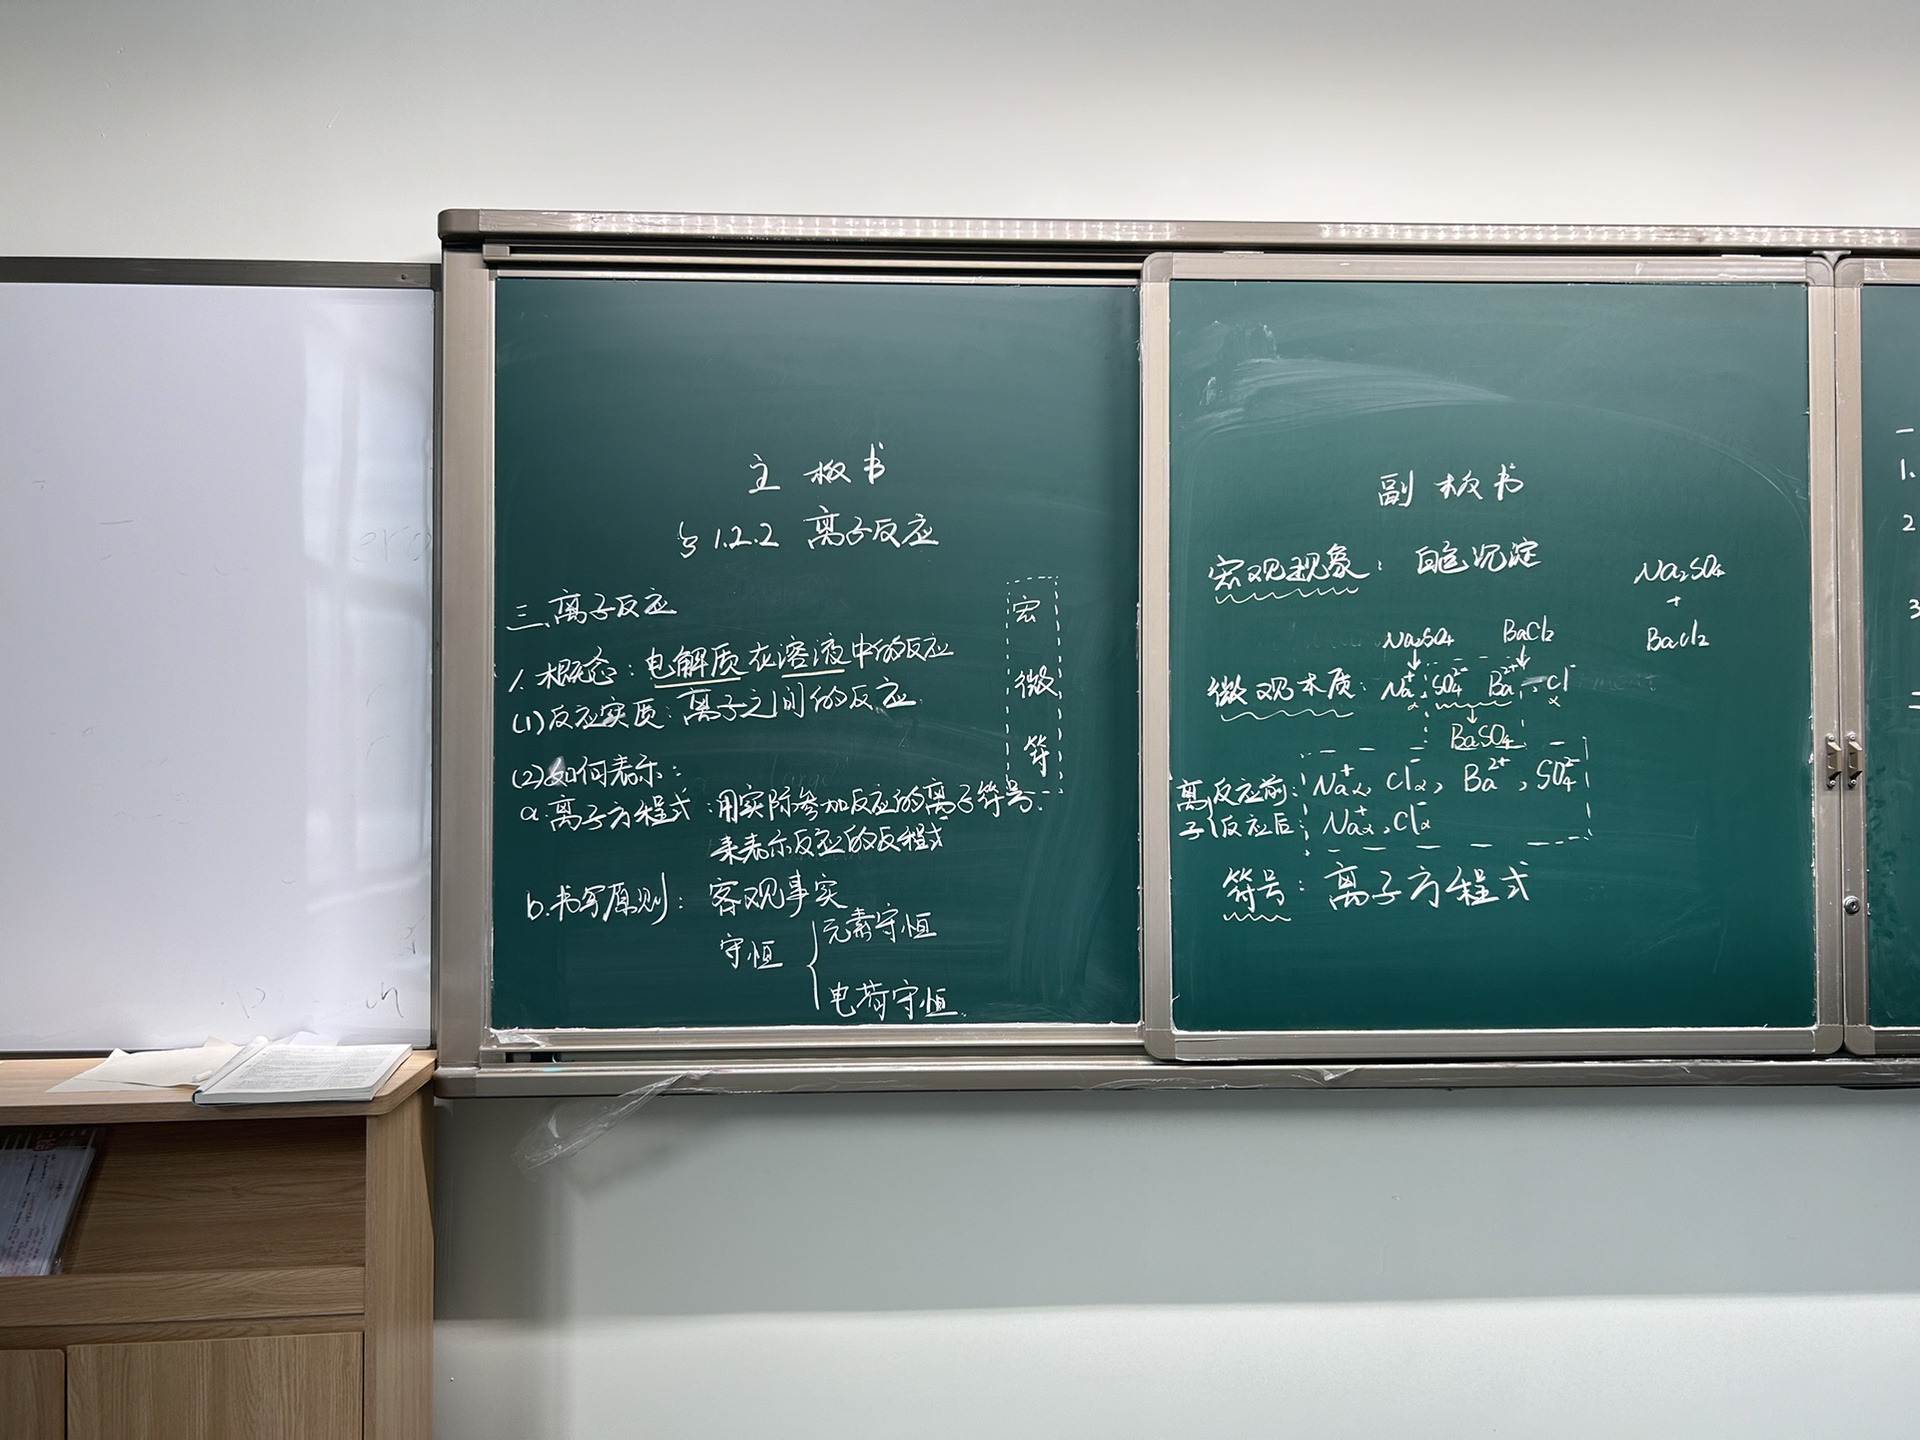 主板书
§1.2.2 离子反应
三、离子反应
1.概念:电解质在溶液中的反应
(1)反应实质:离子之间的反应.
(2)如何表示:
a.离子方程式:用实际参加反应的离子符号.
来表示反应的反程式
b.书写原则:客观事实
守恒
元素守恒
电荷守恒.
宏
微
符
副板书
宏观现象:白色沉淀
Na₂SO₄
+
BaCl₂
Na₂SO₄ BaCl₂
微观本质:Na⁺ SO₄²⁻ Ba²⁺ Cl⁻
BaSO₄
离子
反应前:Na⁺, Cl⁻, Ba²⁺, SO₄²⁻
反应后:Na⁺, Cl⁻
符号:离子方程式
一
1.
2
3
二